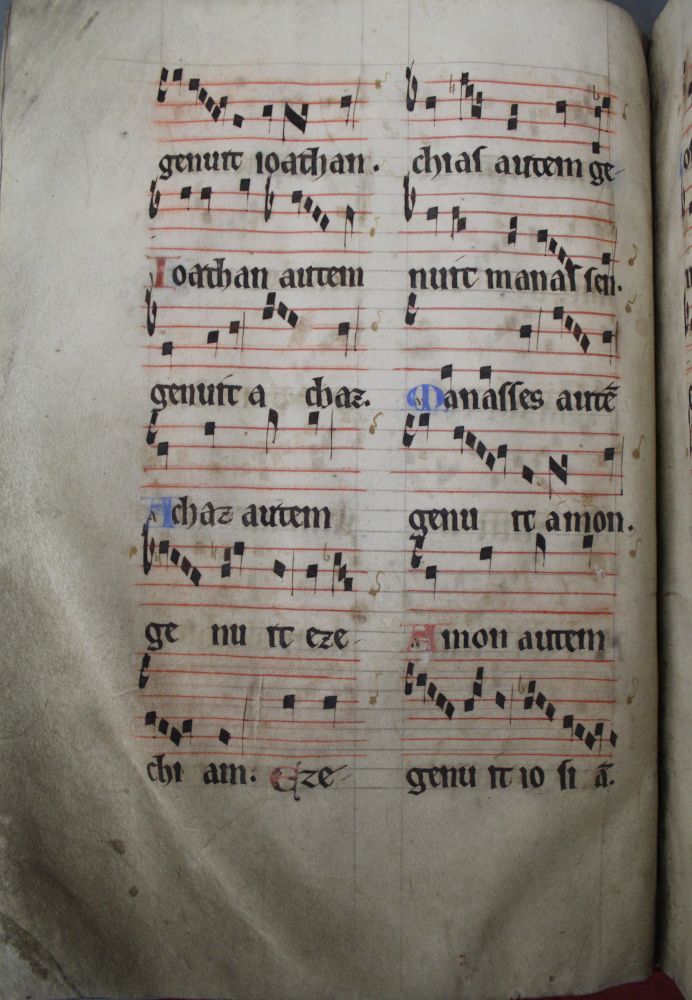 genuit ioathan.
Ioathan autem
genuit a chaz.
Achaz autem
ge nu it eze
chi am. Eze
chias autem ge
nuit manassen.
Manasses autē
genu it amon.
Amon autem
genu it io si ā.